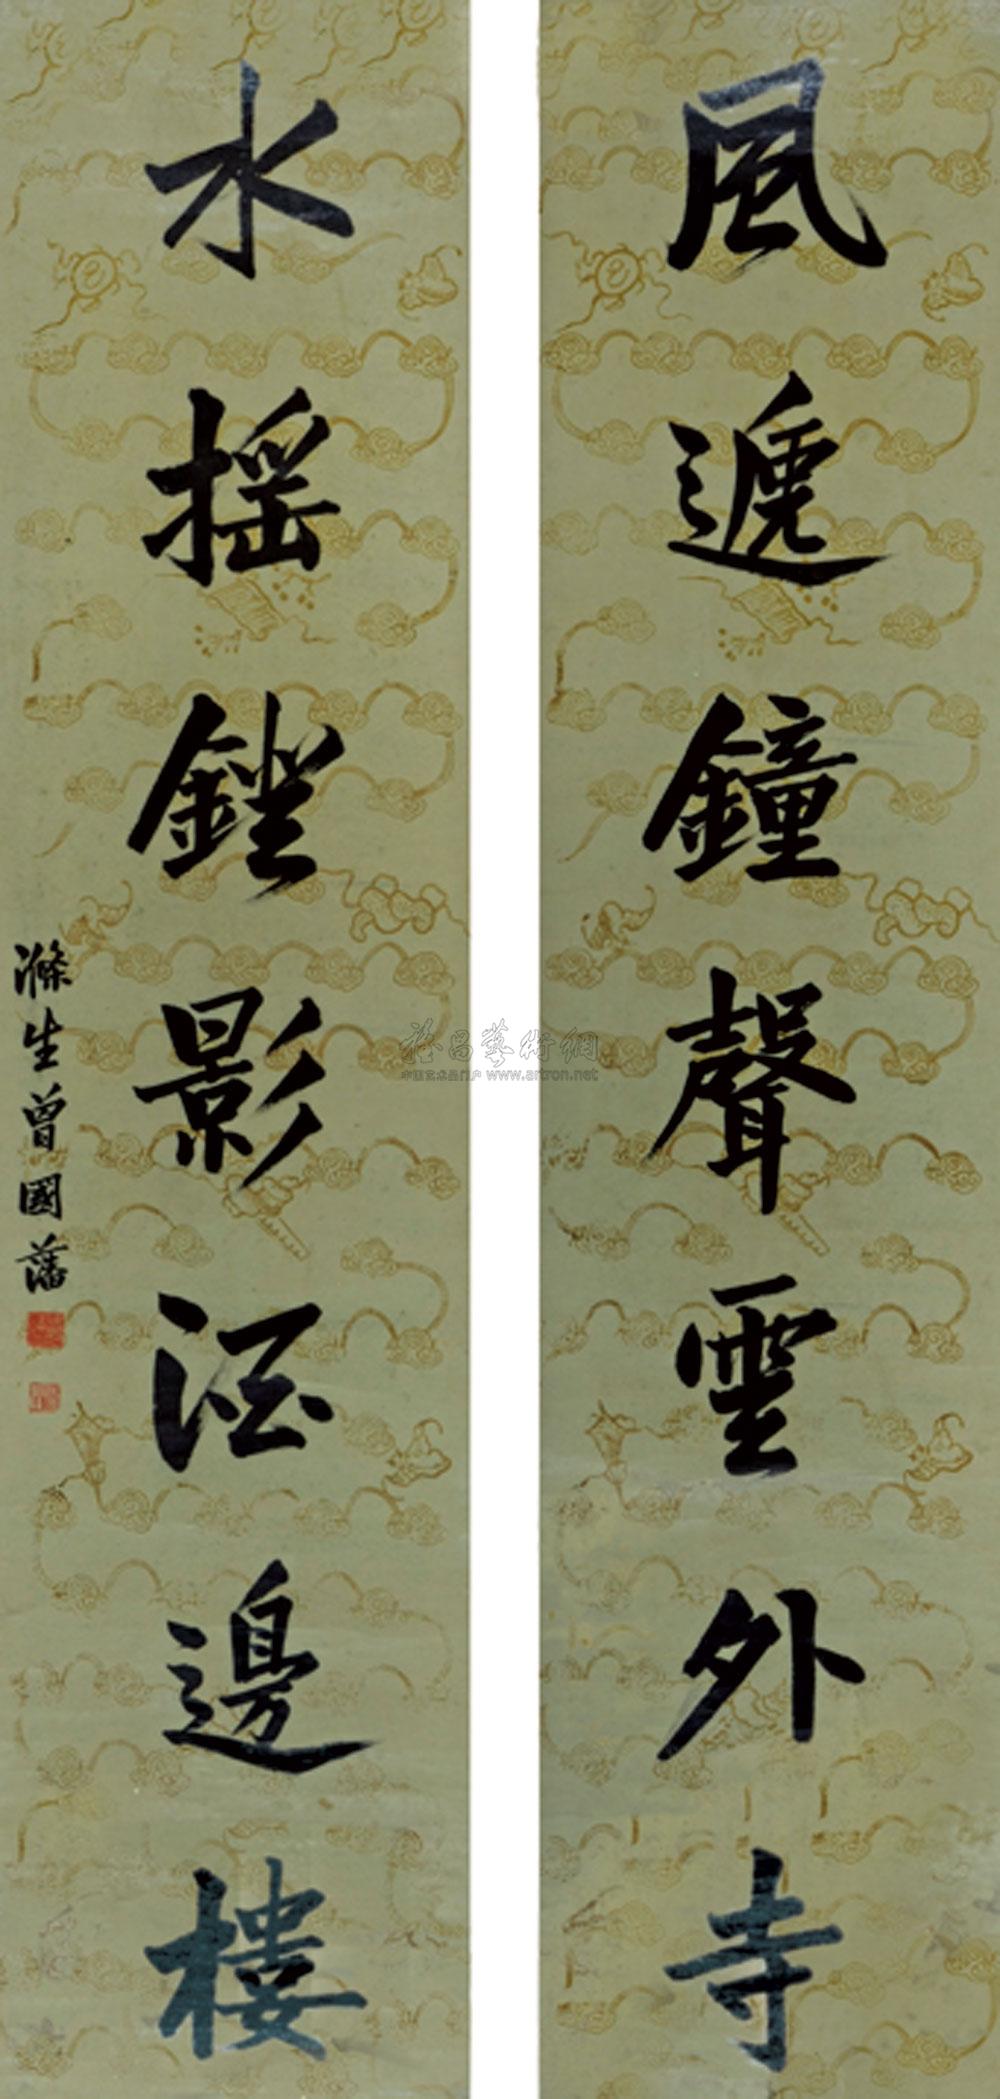 風遞鐘聲雲外寺
水搖鐙影酒邊樓
滌生曾國藩
雅昌藝術網
中国艺术品门户 www.artron.net